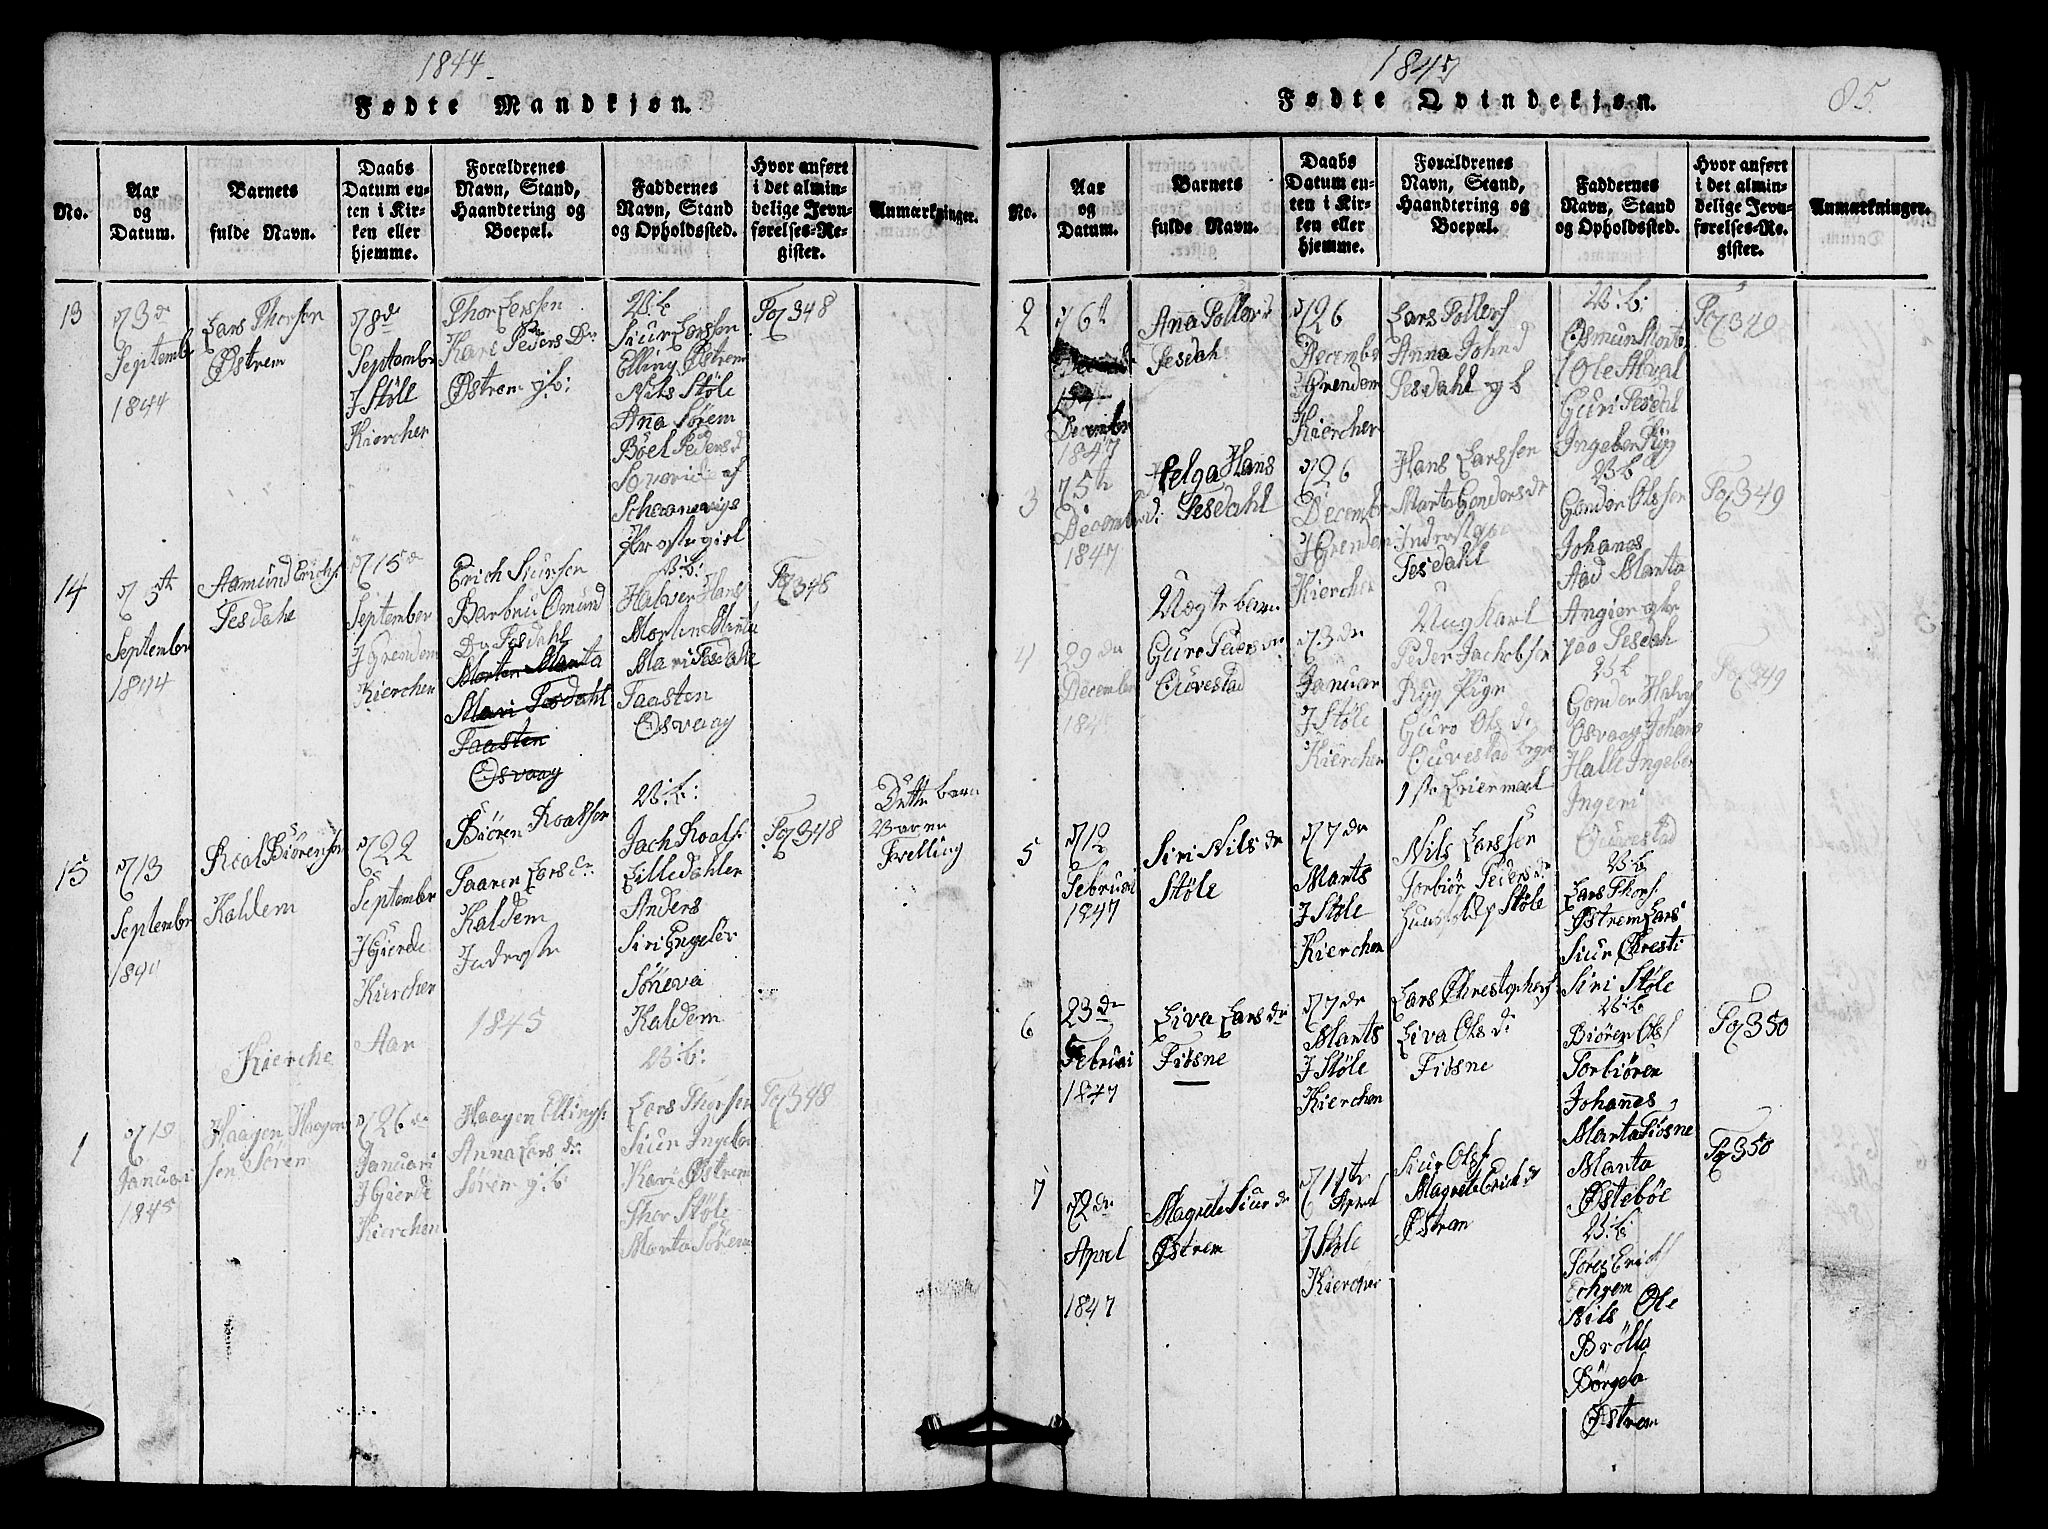 1844
Fødte Mandkjøn.
No.
Aar
og
Datum.
Barnets
fulde Navn.
Daabs
Datum en-
ten i Kir-
ken eller
hjemme.
Forældrenes
Navn, Stand,
Haandtering og
Boepæl.
Faddernes
Navn, Stand
og Opholdssted.
Hvor anført
i det almin-
delige Jevn-
førelses-Re-
gister.
Anmærkninger.
13
3de
Septembr
1844
Lars Thorsen
Østrem
8de
Septembr
J Støle
Kierchen
Thor Larssen
Kari Peders Dr
Østrem g.b:
V:b:
Siur Larssen
Elling Østrem
Nils Støle
Anna Sørem
Boel Pedersd
Fog 348
14
5te
September
1844
Aamund Erichs
Tesdahl
15de
September
J Grendem
Kierchen
Erich Siursen
Barbru Omund
Dr Tesdahl
Morten Manta
Mari Tesdahl
Taasten
Osvaag
V:b:
Halvor Hans
Morten Manta
Mari Tesdahl
Taasten
Osvaag
Fog 348
15
13
Septembr
1844
Roal Biørensen
Kaldem
22
Septembr
J Gierde
Kierchen
Biøren Roalsen
Taaren Lars dr
Kaldem
Inderste
V:b:
Jach Roals
Lilledahlen
Anders
Siri Engelev
Søneva
Kaldem
Fog 348
Dette barn
Var en
Tvelling
Kierche Aar 1845
1
19
Januari
1845
Haagen Haagen
sen Sørem
26de
Januari
J Gierde
Kierchen
Haagen Ellings
Anna Lars dr
Sørem g:b:
V:b:
Lars Thorsen
Siur Ingebor
Kari Østrem
Thor Støle
Marta Sørem
Fog 348
1847
85.
Fødte Qvindekjøn.
No.
Aar
og
Datum.
Barnets
fulde Navn.
Daabs
Datum en-
ten i Kir-
ken eller
hjemme.
Forældrenes
Navn, Stand,
Haandtering og
Boepæl.
Faddernes
Navn, Stand
og Opholdssted.
Hvor anført
i det almin-
delige Jevn-
førelses-Re-
gister.
Anmærkninger.
2
6te
Decembr
1847
Anna Pollers
Tesdah
26
Decembr
J Grendem
Kierchen
Lars Pollers
Anna Johnd
Tesdahl g b
V:b:
Osmun Morte
Ole Mival
Guri Tesdal
Ingebor Rÿg
Fog 349
3
5te
Decembr
1847
Helga Hans
d: Tesdahl
26
Decembr
J Grenden
Kierchen
Hans Larssen
Marta Gonders dr
Inderste
Tesdahl
V:b
Gonder Olssen
Johanes
Aad Manta
Angier
Tesdah
Fog 349
4
29de
December
Uegte barn
Guro Peders dr
Ouvestad
3de
Januar
J Støle
Kierchen
Ung Karl
Peder Jachobsen
Rÿg Pige
Guro Ols dr
Ouvestad
1ste Leiermaal
V:b
Gonder Halvors
Osvaag Johans
Halle Ingebor
Ingeri
Ouvestad
Fog 349
5
12
Februari
1847
Siri Nils dr
Støle
7de
Marts
J Støle
Kierchen
Nils Larssen
Torbiør Peders dr
Støle
V:b:
Lars Thors
Østrem Lars
Siur Christi
Siri Støle
6
23de
Februari
1847
Liva Lars dr
Fiøsne
7de
Marts
J Støle
Kierchen
Lars Christophers
Liva Ols dr
Fiøsne
V:b:
Biøren Ols
Torbiøren
Johanes
Marta Fiøsne
Manta
Østebøe
Fog 350
7
2de
April
1847
Magrete Siur dr
Østrem
11te
April
J Støle
Kierchen
Siur Ols
Magrete Erich dr
Østrem
V:b:
Tores Erichs
Echrem
Nils Ole
Brølla
Børgela
Østrem
Fog 350